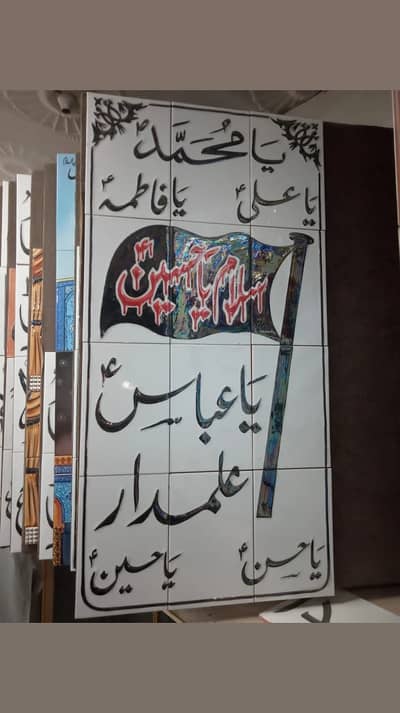 یا محمدؐ
یا علیؑ یا فاطمہؑ
سلام یا حسینؑ
یا عباسؑ
علمدار
یا حسنؑ یا حسینؑ